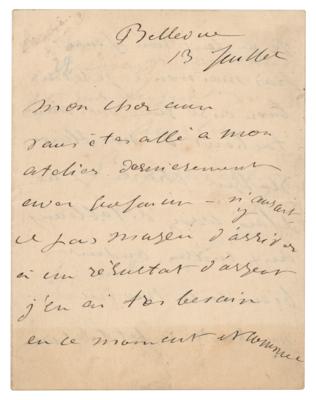 Bellevue
13 Juillet
mon cher ami
vous êtes allé a mon
atelier dernierement
avec – n'y aurait
il pas moyen d'arriver
à un résultat d'argent
j'en ai tres besoin
en ce moment et comme